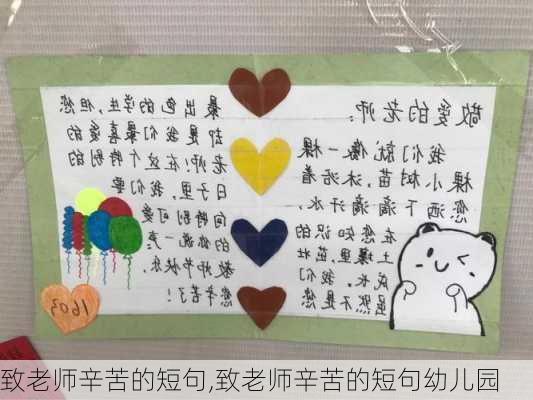 敬爱的老师:
我们就像一棵
棵小树苗,沐浴着
您洒下滴滴汗水,
在您知识的
土壤里,茁壮
成长。我们
虽然不是您
最出色的学生,但您
却是我们最喜爱的
老师!在这个特别的
日子里,我们要
向特别可爱
的您说一声:
教师节快乐,
您辛苦了!
1603
致老师辛苦的短句,致老师辛苦的短句幼儿园